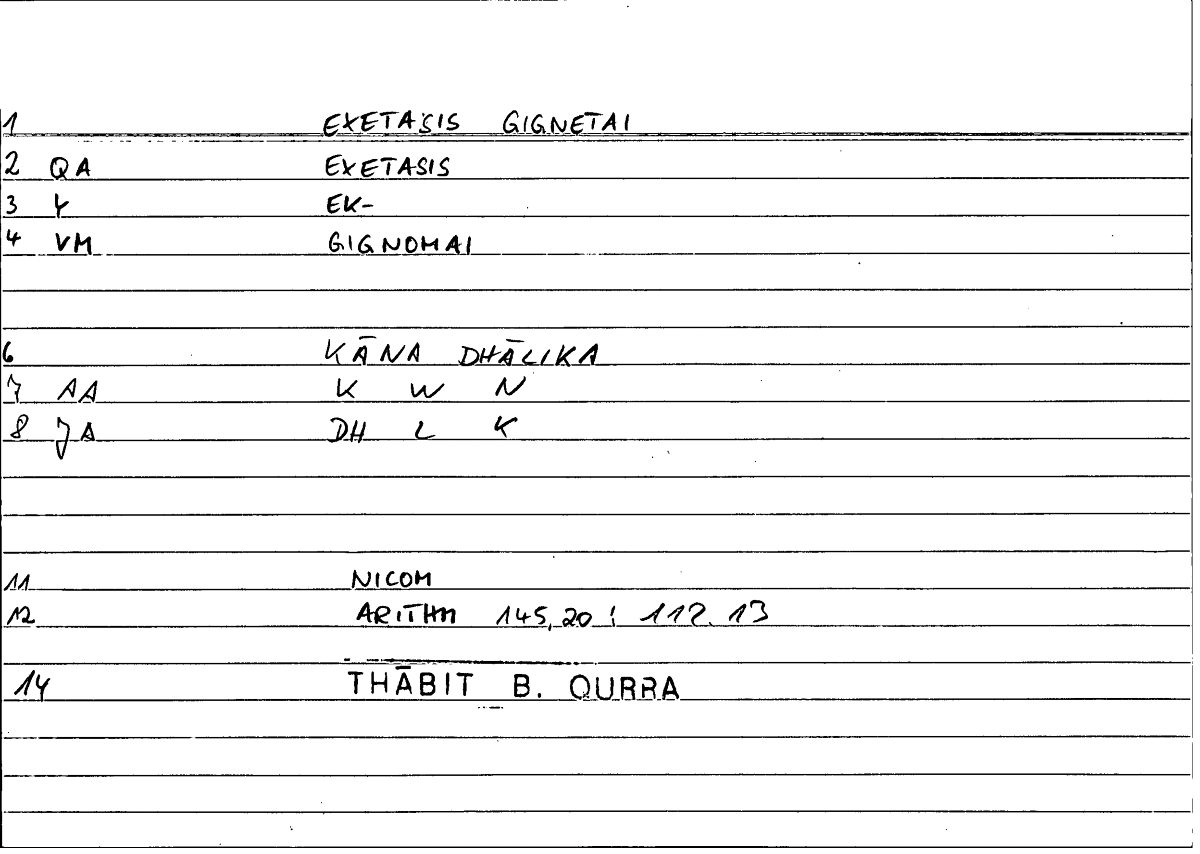 1 EXETASIS GIGNETAI
2 QA EXETASIS
3 Y EK-
4 VM GIGNOMAI
6 KĀNA DHĀLIKA
7 AA K W N
8 JA DH L K
11 NICOM
12 ARITHM 145,20 ; 112.13
14 THĀBIT B. QURRA